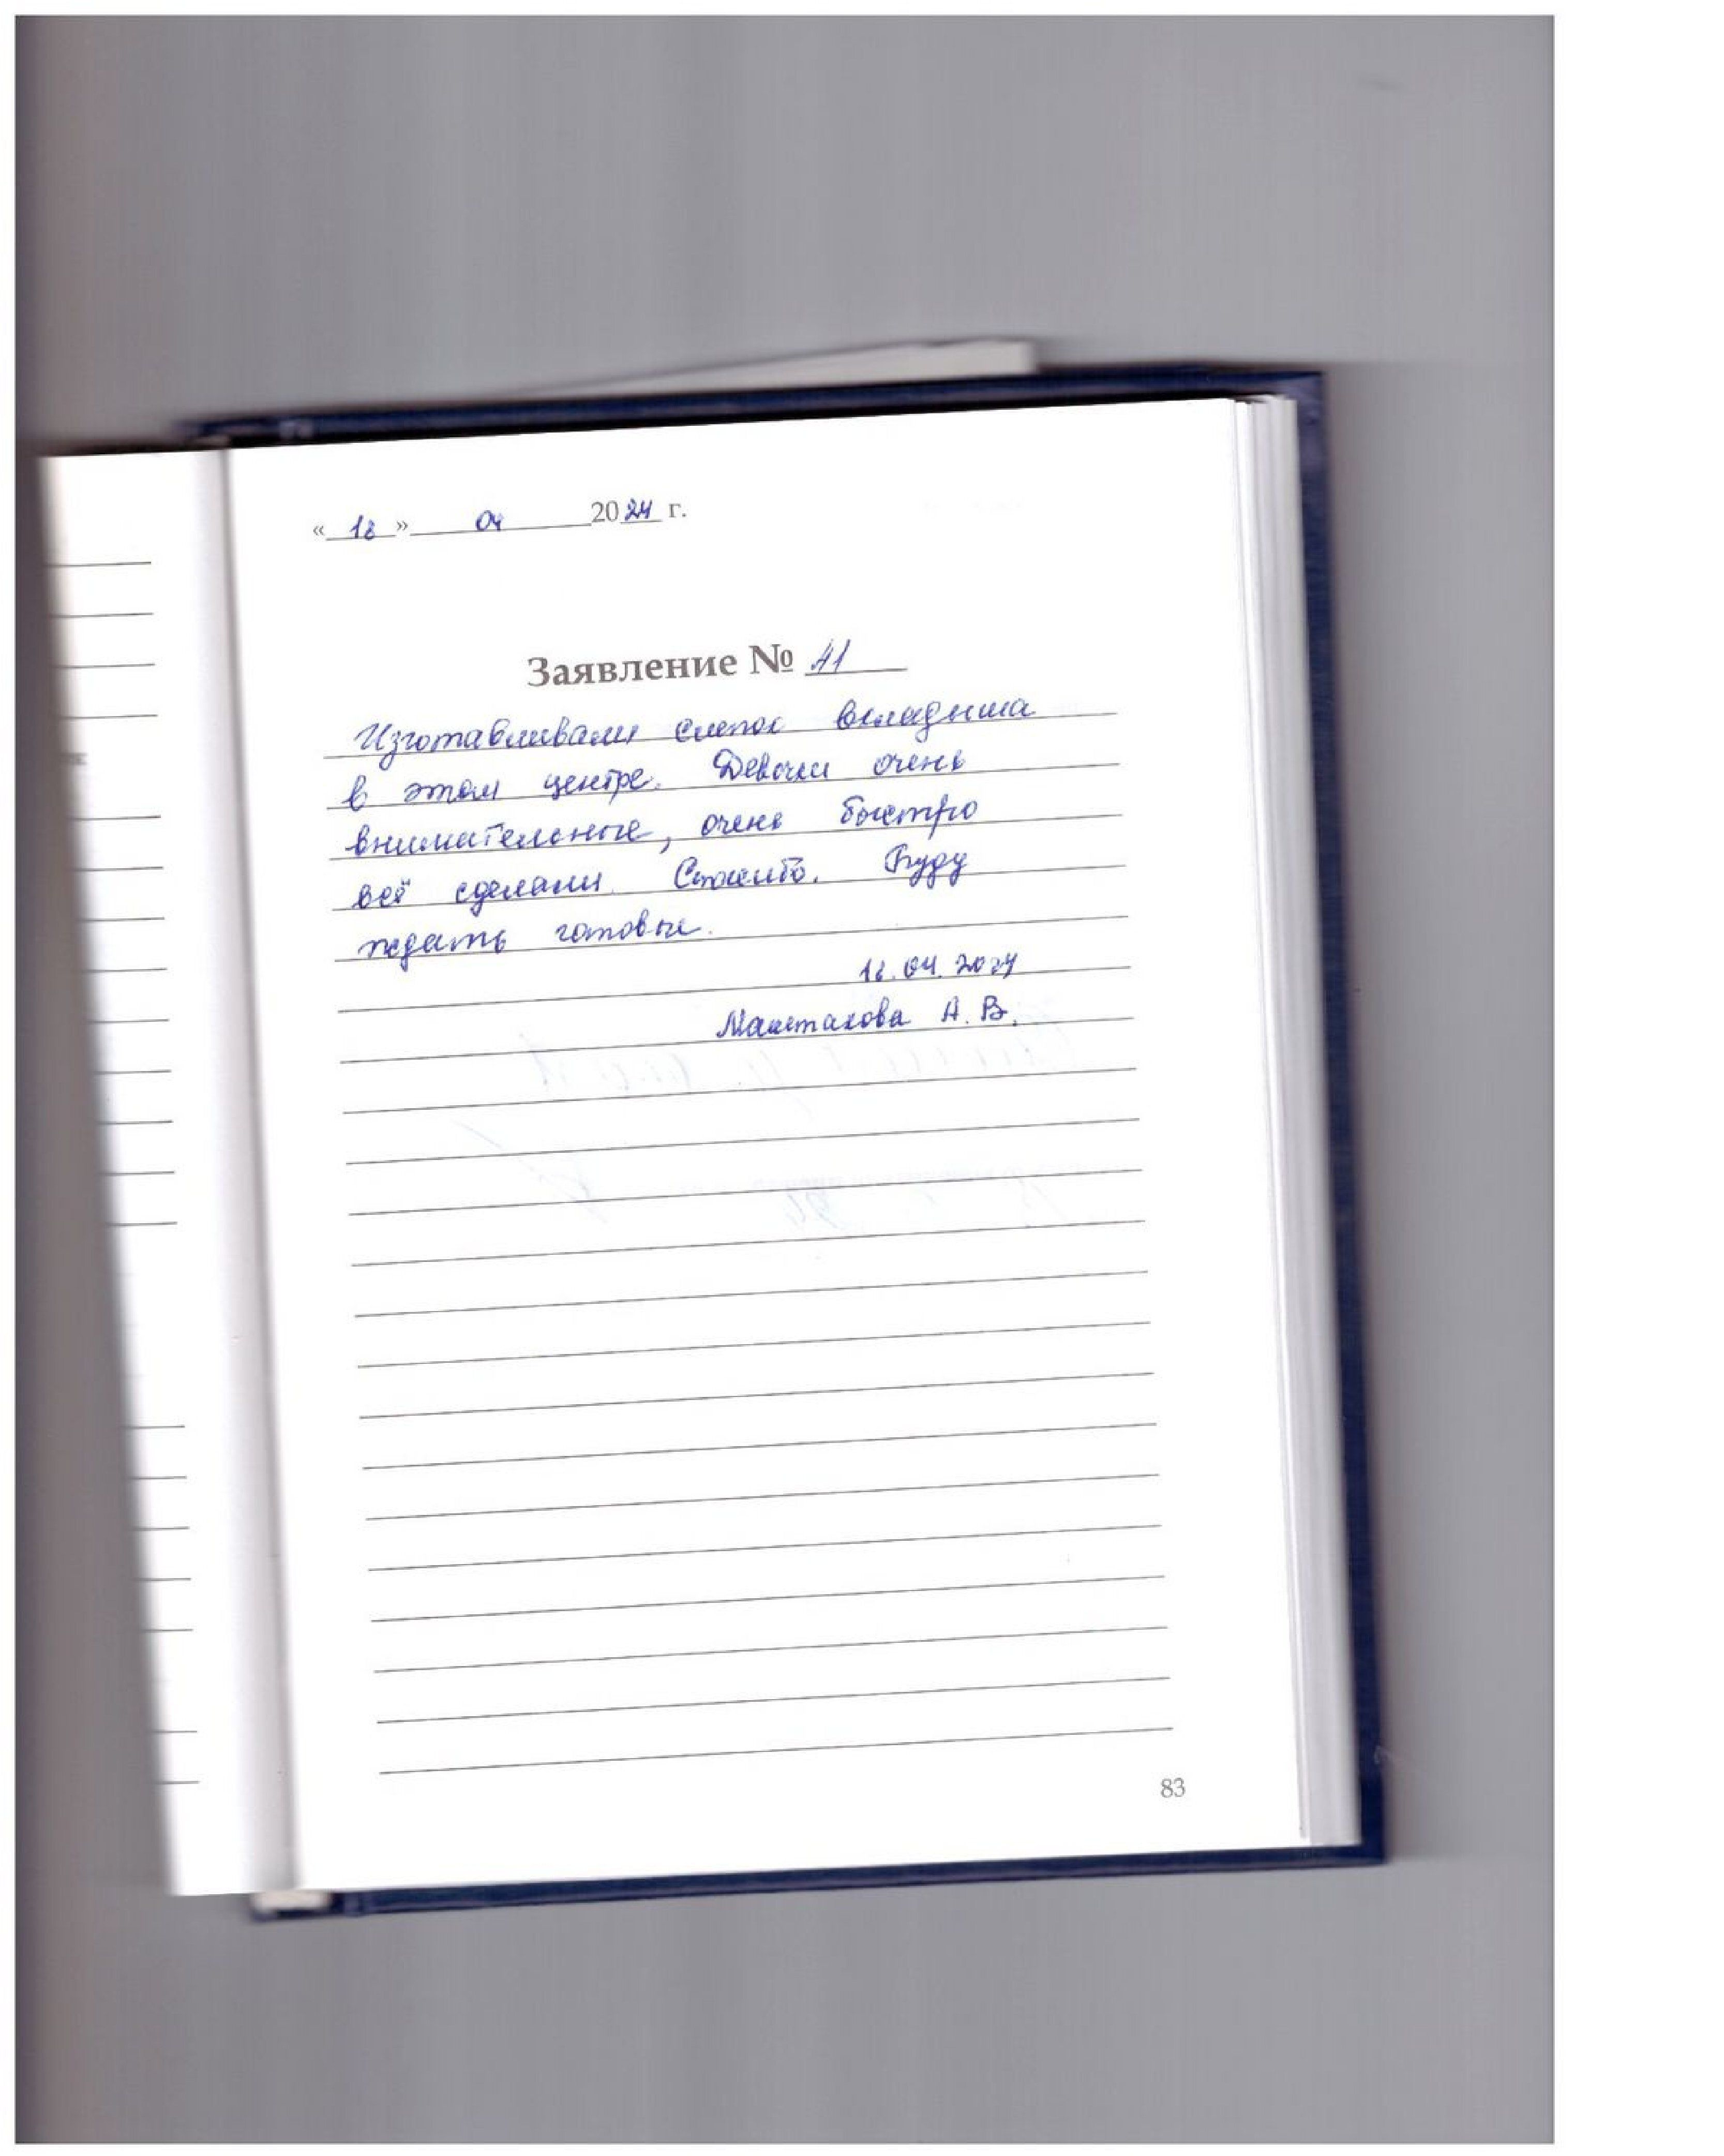 « 18 » 04 2024 г.
Заявление № 41
Изготавливали слепок вкладыша
в этом центре. Девочки очень
внимательные, очень быстро
всё сделали. Спасибо. Буду
ждать готовые.
18.04.2024
Маштакова А. В.
83